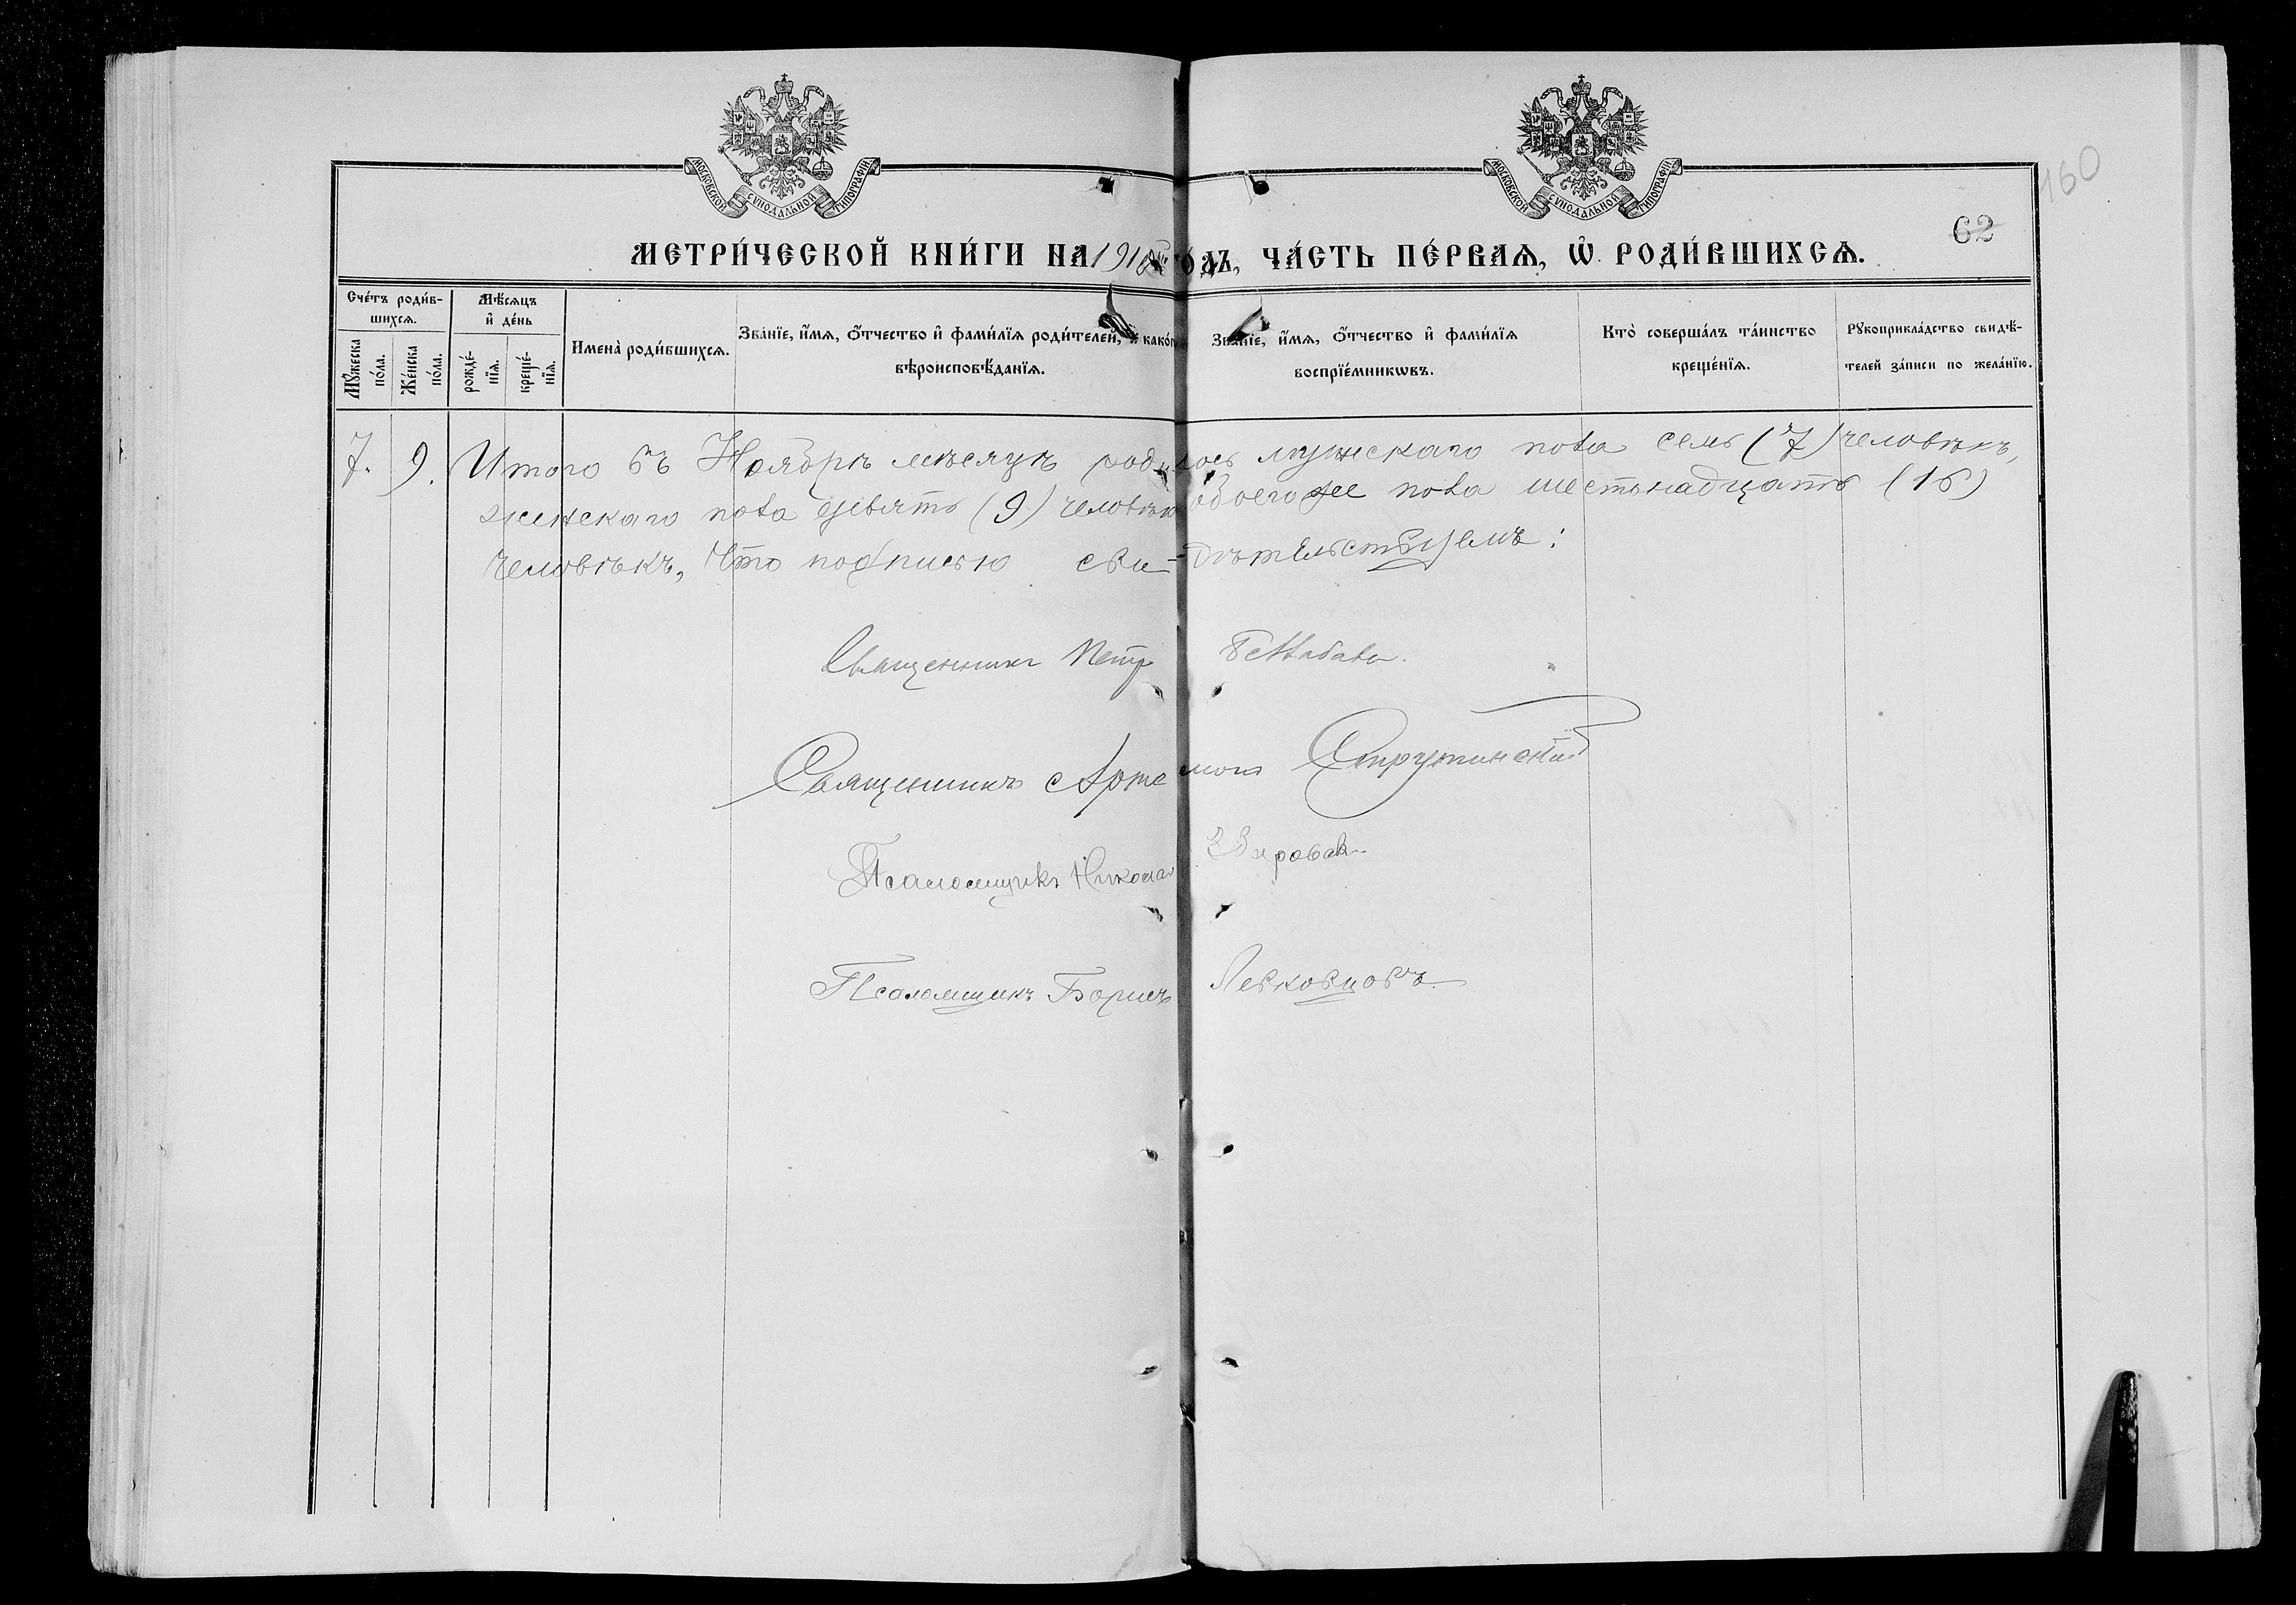 160
62
МОСКОВСКОЙ СѴНОДАЛЬНОЙ ТИПОГРАФІИ
МОСКОВСКОЙ СѴНОДАЛЬНОЙ ТИПОГРАФІИ
МЕТРИ́ЧЕСКОЙ КНИ́ГИ НА 191 го́дъ, ЧА́СТЬ ПЕ́РВАѦ, Ѽ РОДИ́ВШИХСѦ.
Сче́тъ роди́в-
шихсѧ.
Мꙋ́жеска
по́ла.
Же́нска
по́ла.
Мѣ́сѧцъ
и҆ де́нь
рожде́-
нїѧ.
креще́-
нїѧ.
Имена̀ роди́вшихсѧ.
Зва́нїе, и҆́мѧ, ѻ҆́тчество и҆ фами́лїѧ роди́телей, и҆ како́гѡ
вѣроисповѣ́данїѧ.
Зва́нїе, и҆́мѧ, ѻ҆́тчество и҆ фами́лїѧ
воспрїе́мникѡвъ.
Кто̀ соверша́лъ та́инство
креще́нїѧ.
Рꙋкоприкла́дство свидѣ́-
телей за́писи по жела́нїю.
7. 9. Итого въ Ноябрѣ мѣсяцѣ родилось мужскаго пола семь (7) человѣкъ,
женскаго пола девять (9) человѣкъ обоего же пола шестьнадцать (16)
человѣкъ, Что подписью сви-дѣтельствуемъ:
Священникъ Петръ
Священникъ Артемонъ Струтинскій
Псаломщикъ Николай
Псаломщикъ Борисъ Левковцовъ.